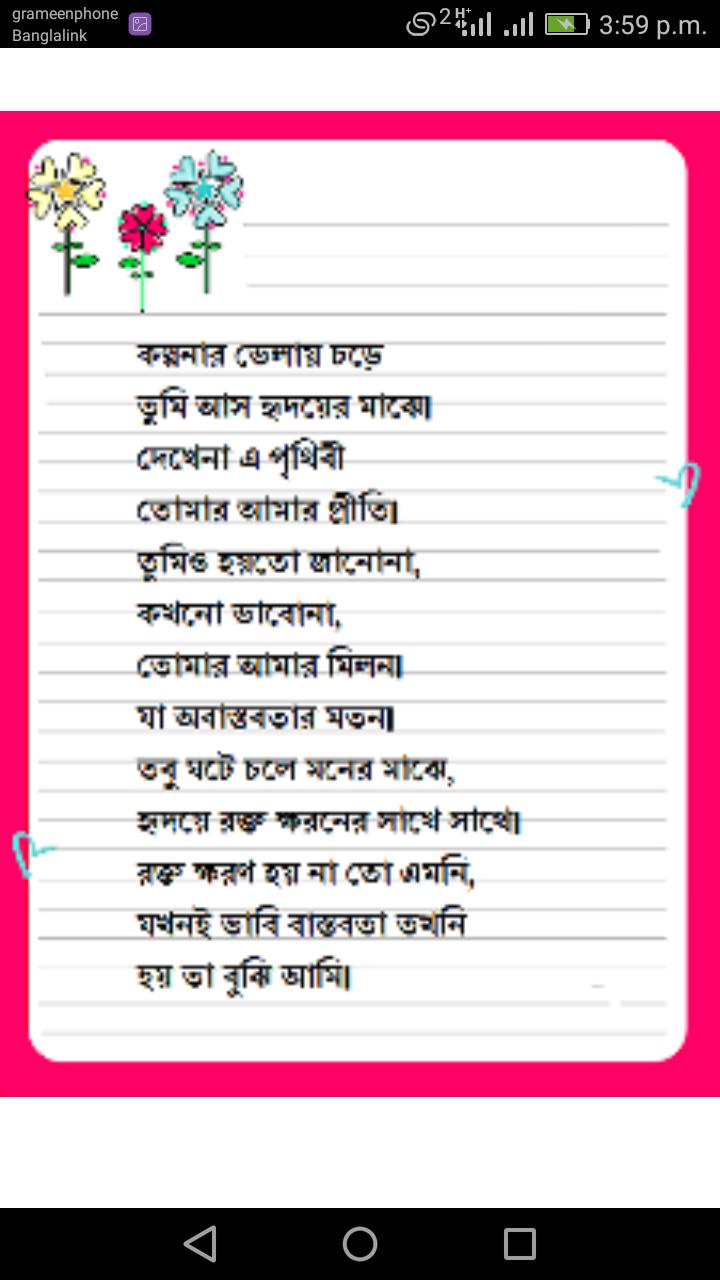 grameenphone
Banglalink
2 H+ 3:59 p.m.
কল্পনার ভেলায় চড়ে
তুমি আস হৃদয়ের মাঝে।
দেখেনা এ পৃথিবী
তোমার আমার প্রীতি।
তুমিও হয়তো জানোনা,
কখনো ভাবোনা,
তোমার আমার মিলন।
যা অবাস্তবতার মতন।
তবু ঘটে চলে মনের মাঝে,
হৃদয়ে রক্ত ক্ষরনের সাথে সাথে।
রক্ত ক্ষরণ হয় না তো এমনি,
যখনই ভাবি বাস্তবতা তখনি
হয় তা বুঝি আমি।